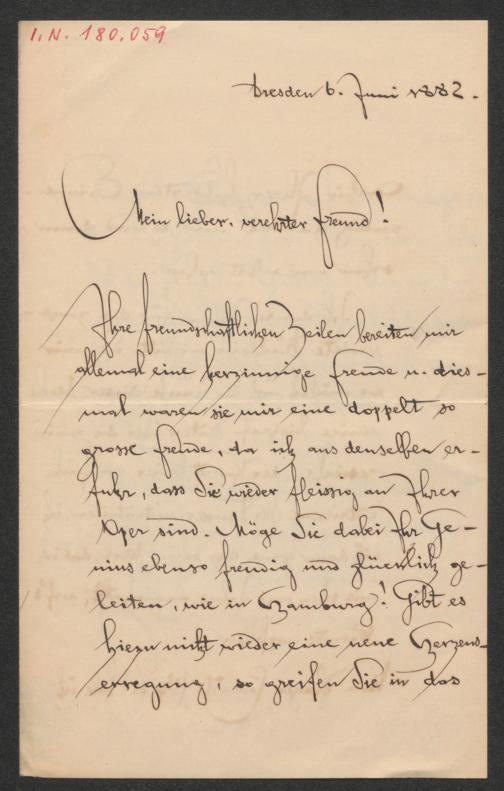 I.N. 180.059
Dresden 6. Juni 1882.
Mein lieber, verehrter Freund!
Ihre freundschaftlichen Zeilen bereiten mir
allemal eine herzinnige Freude u. dies-
mal waren sie mir eine doppelt so
grosse Freude, da ich aus denselben er-
fuhr, dass Sie wieder fleissig an Ihrer
Oper sind. Möge Sie dabei Ihr Ge-
nius ebenso freudig und glücklich ge-
leiten, wie in Hamburg! Gibt es
hiezu nicht wieder eine neue Herzens-
erregung, so greifen Sie in das